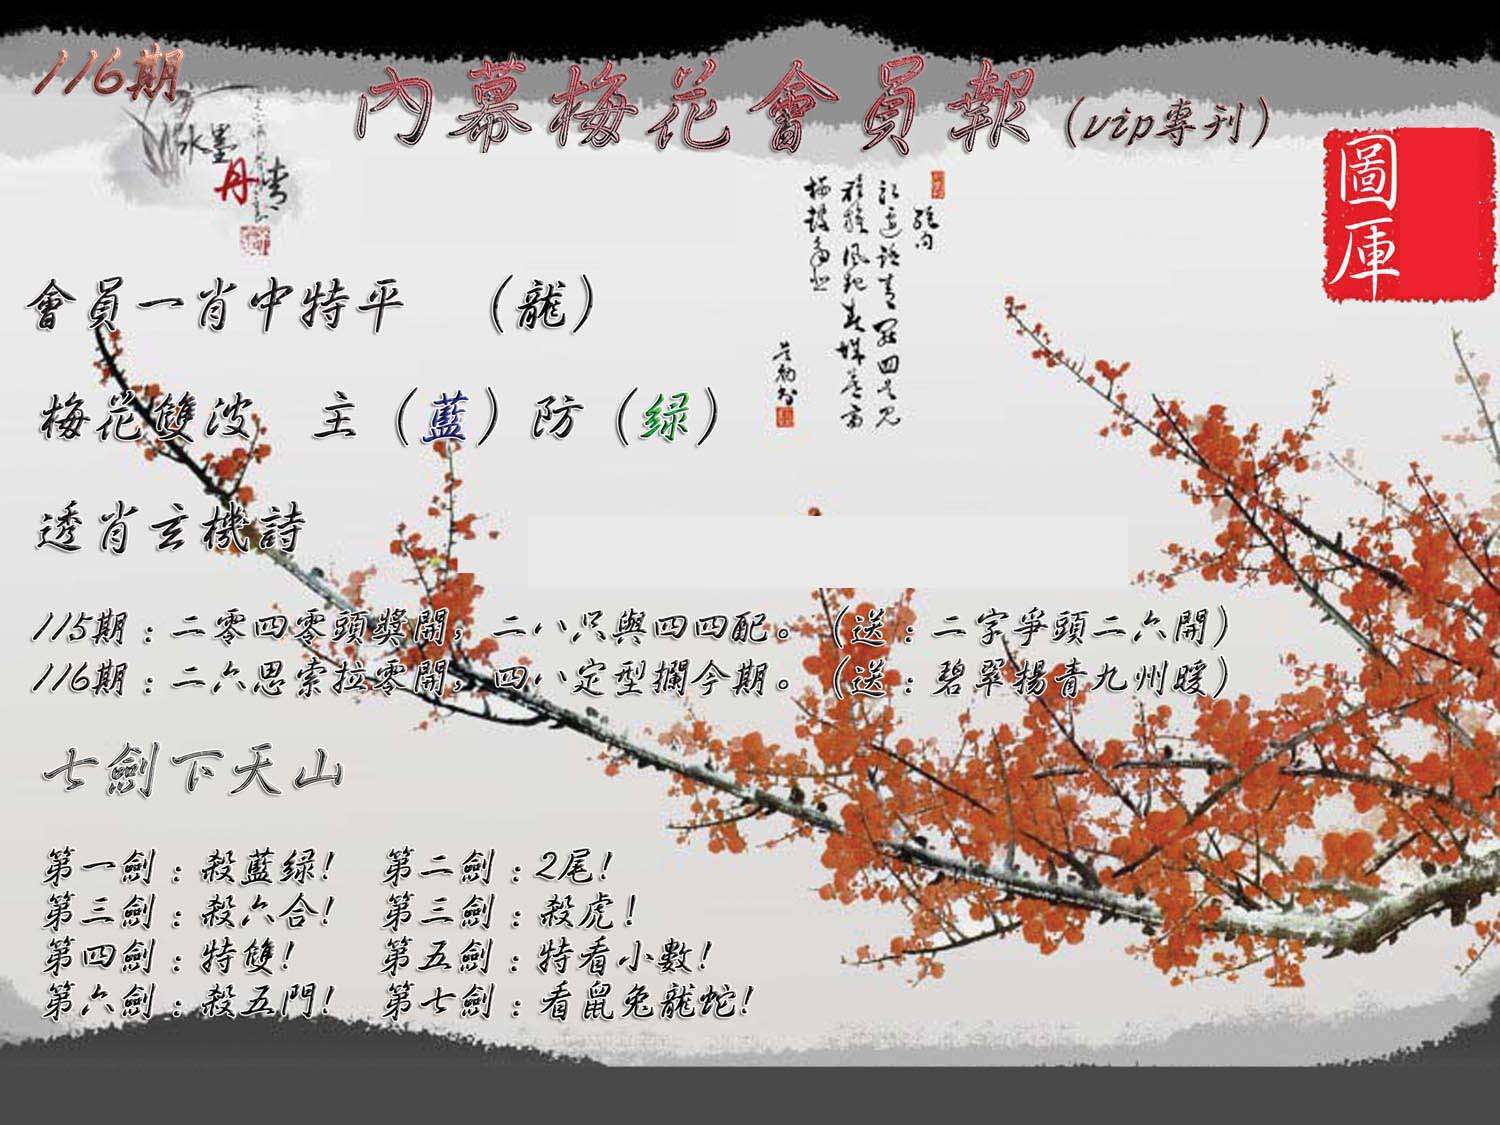 116期
內幕梅花會員報(vip專刊)
水墨
丹青
圖庫
會員一肖中特平 (龍)
梅花雙波 主(藍)防(绿)
透肖玄機詩
115期:二零四零頭獎開,二八只與四四配。(送:二字爭頭二六開)
116期:二六思索拉零開,四八定型攔今期。(送:碧翠揚青九州暖)
七劍下天山
第一劍:殺藍绿! 第二劍:2尾!
第三劍:殺六合! 第三劍:殺虎!
第四劍:特雙! 第五劍:特看小數!
第六劍:殺五門! 第七劍:看鼠兔龍蛇!